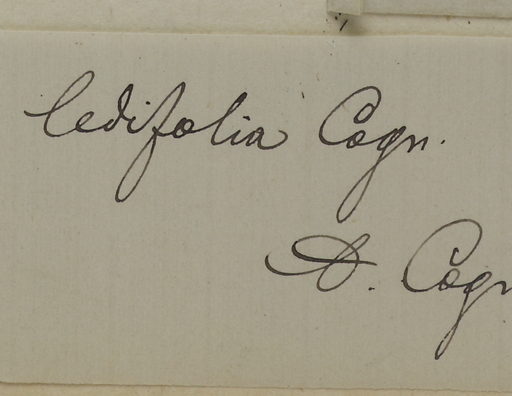 ledifolia Cogn.
A. Cogn